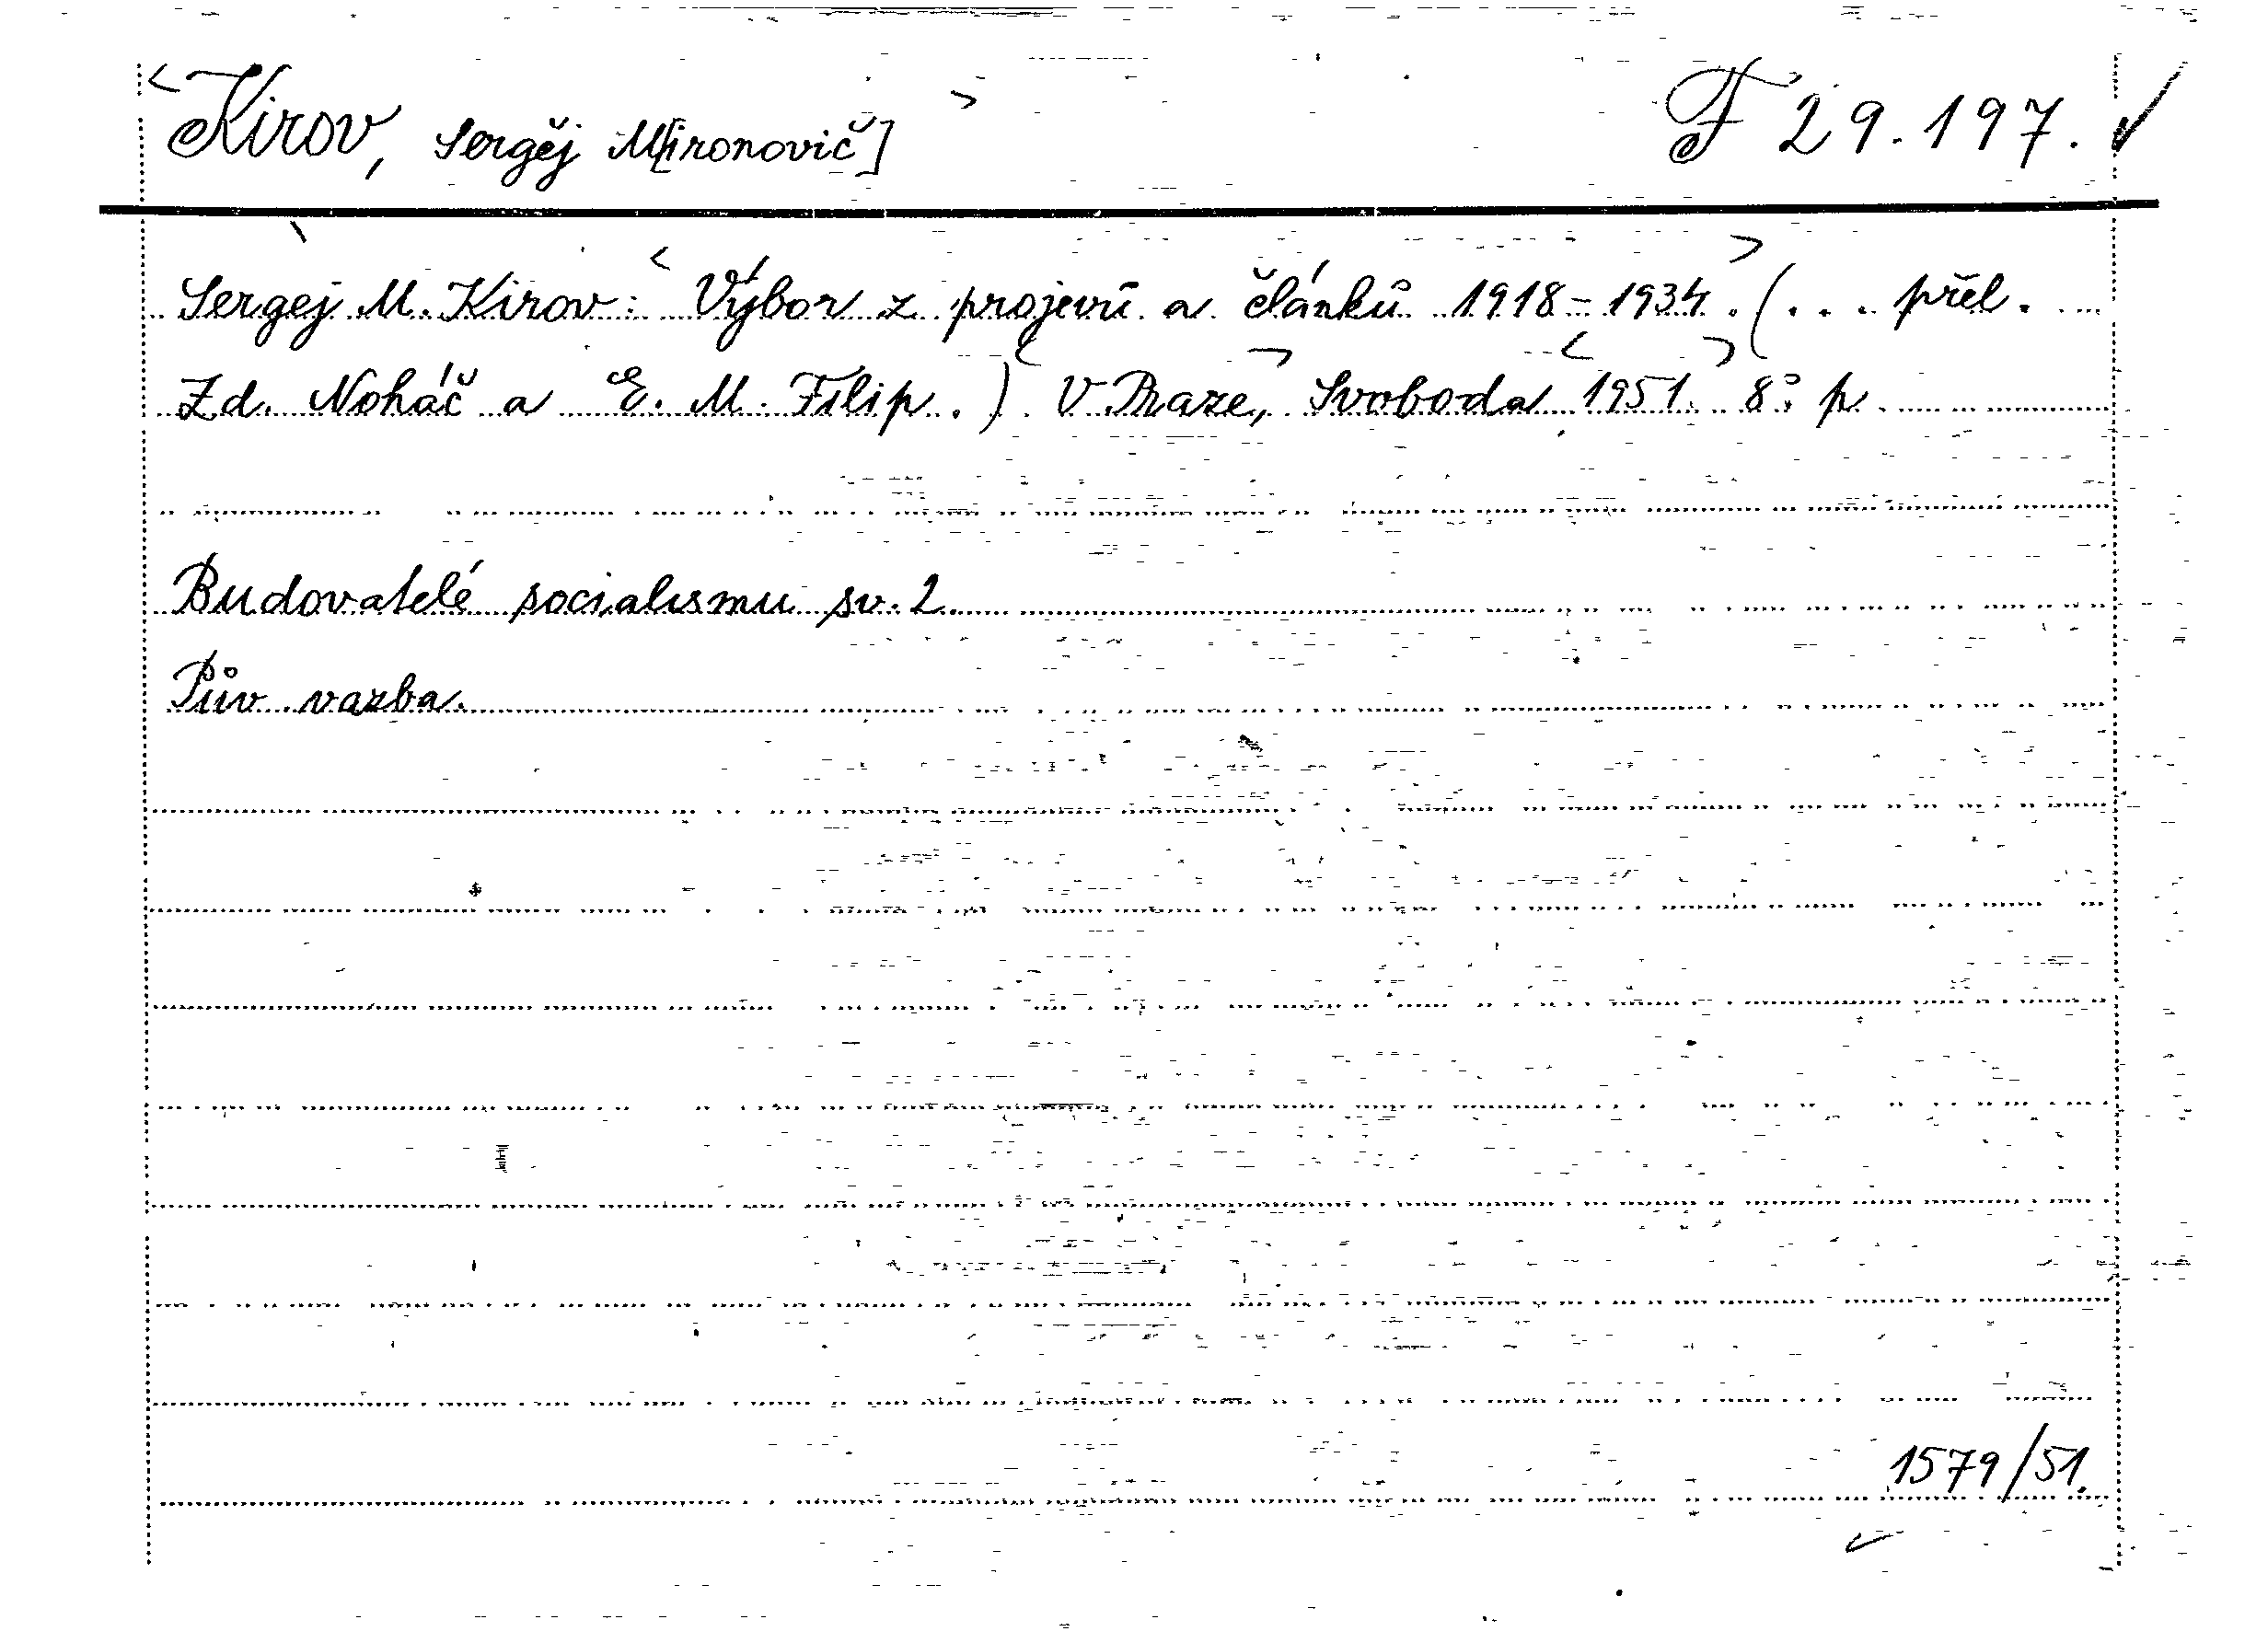 <Kirov, Sergěj M[ironovič]> F 29.197. ✓
Sergej M. Kirov: <Výbor z projevů a článků 1918-1934.> (... přel.
Zd. Noháč a E. M. Filip.) <V Praze,> Svoboda <1951.> 8° p.
Budovatelé socialismu sv. 2.
Pův. vazba.
1579/51.